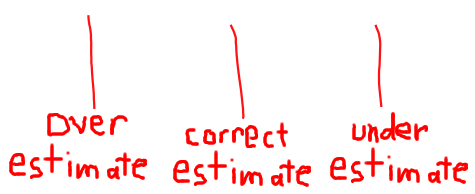 Over estimate
correct estimate
under estimate